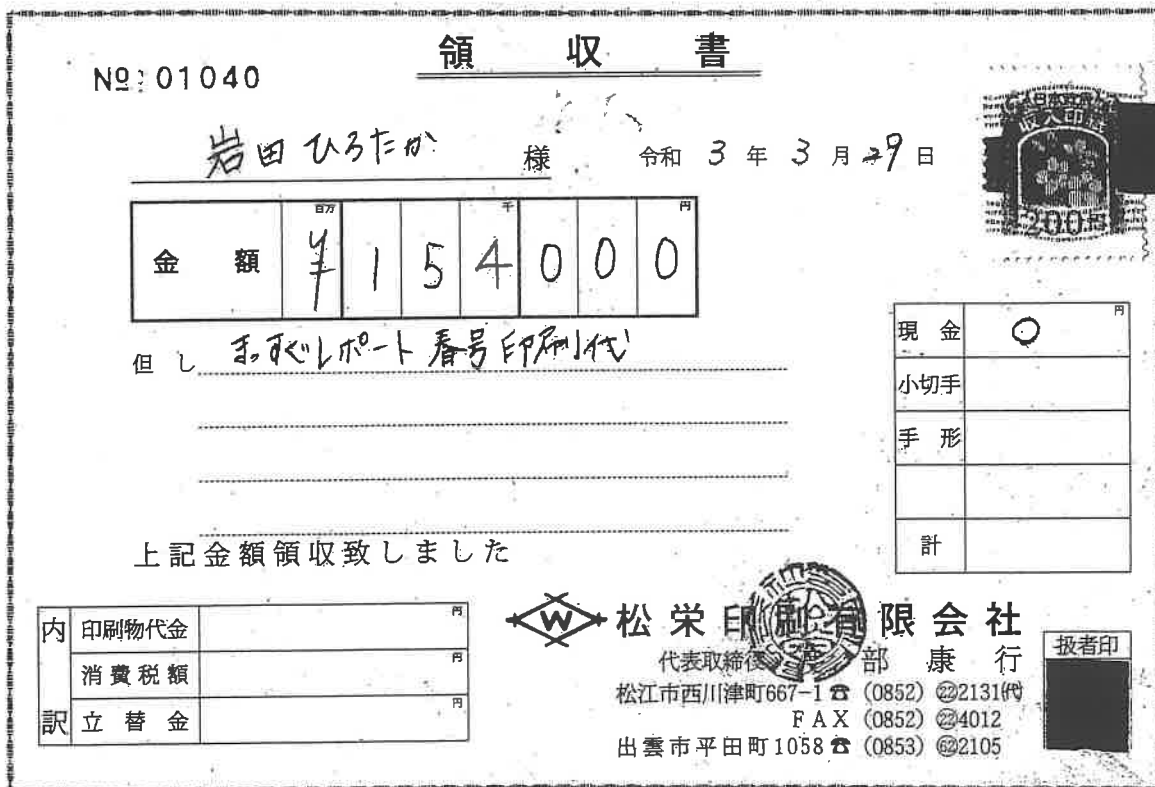 領収書
№ 01040
岩田ひろたか 様 令和 3 年 3 月 29 日
収入印紙
200円
金額 百万 千 円
¥154000
但し まっすぐレポート 春号 印刷代
現金 ○ 円
小切手
手形
計
上記金額領収致しました
内訳
印刷物代金 円
消費税額 円
立替金 円
W 松栄印刷有限会社
代表取締役 部康行
松江市西川津町667-1 ☎ (0852) ㉒2131㈹
FAX (0852) ㉒4012
出雲市平田町1058 ☎ (0853) 62 2105
扱者印